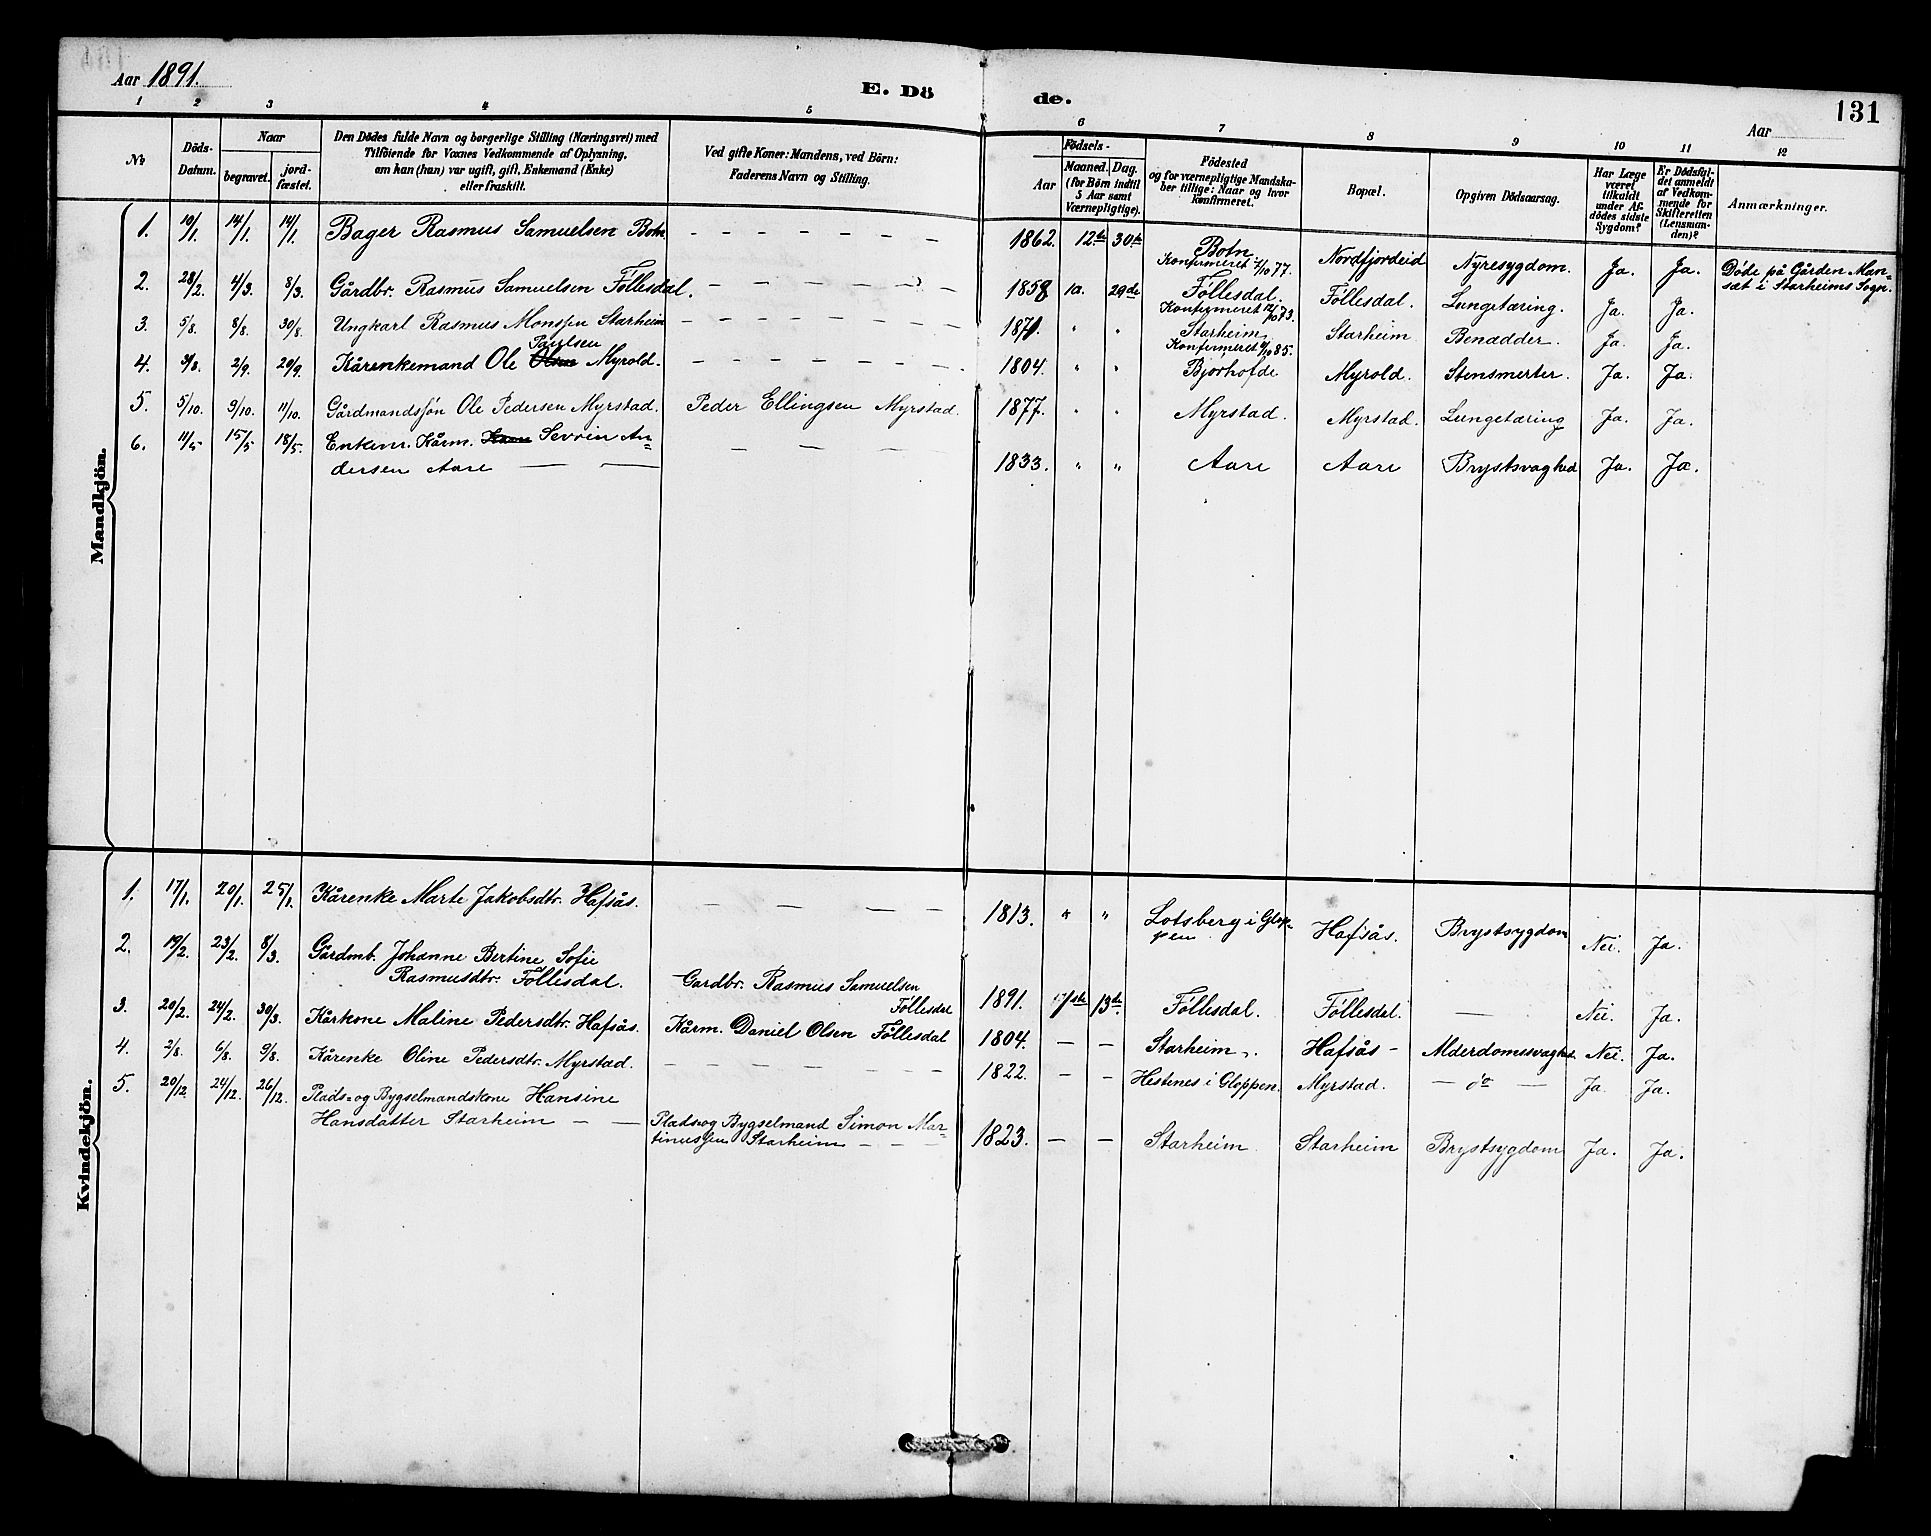 Aar 1891.
E. Dö
de.
131
Aar
1 2 3 4 5 6 7 8 9 10 11 12
No
Döds-
Datum.
Naar
begravet.
jord-
fæstet.
Den Dödes fulde Navn og borgerlige Stilling (Næringsvei) med
Tilföiende for Voxnes Vedkommende af Oplysning,
om han (hun) var ugift, gift, Enkemand (Enke)
eller fraskilt.
Ved gifte Koner: Mandens, ved Börn:
Faderens Navn og Stilling.
Födsels-
Aar
Maaned. Dag.
(for Börn indtil
5 Aar samt
Værnepligtige).
Födested
og for værnepligtige Mandska-
ber tillige: Naar og hvor
Konfirmeret.
Bopæl.
Opgiven Dödsaarsag.
Har Læge
været
tilkaldt
under Af-
dödes sidste
Sygdom?
Er Dödsfal-
det anmeldt
af Vedkom-
mende for
Skifteretten
(Lensman-
den)?
Anmærkninger.
Mandkjön.
1. 10/1. 14/1. 14/1. Bager Rasmus Samuelsen Botn. – – – – – – – 1862. 12te 30te Botn Nordfjordeid Nyresygdom. Ja. Ja. Døde på Gården Man-
Konfirmeret 7/10 77. sæt i Starheims Sogn.
2. 28/2. 4/3. 8/3. Gårdbr. Rasmus Samuelsen Föllesdal. – – – – – – – 1858 10. 29de Föllesdal. Föllesdal. Lungetæring. Ja. Ja.
Konfirmeret 12/10 73.
3. 5/8. 8/8. 30/8. Ungkarl Rasmus Monssen Starheim – – – – – – – 1871. " " Starheim Starheim Benædder. Ja. Ja.
Paulsen Konfirmeret 4/10 85.
4. 31/8. 2/9. 20/9. Kårenkemand Ole Olsen Myrold. – – – – – – – 1804. " " Bjørhofde Myrold. Stensmerter. Ja. Ja.
5. 5/10. 9/10. 11/10. Gårdmandssøn Ole Pedersen Myrstad. Peder Ellingsen Myrstad. 1877. " " Myrstad. Myrstad. Lungetæring Ja. Ja.
6. 11/5 15/5 18/5. Enkem. Kårm. Sevrin An-
dersen Aare – – – – – 1833. " " Aare Aare Brystsvaghed Ja. Ja.
Kvindekjön.
1. 17/1. 20/1. 25/1. Kårenke Marte Jakobsdtr. Hafsås. – – – – 1813. " " Lotsberg i Glop-
pen Hafsås. Brystsygdom Nei. Ja.
2. 19/2. 23/2. 8/3. Gårdmb. Johanne Bertine Sofie
Rasmusdtr. Föllesdal. Gardbr. Rasmus Samuelsen
Föllesdal 1891. 13de Föllesdal. Föllesdal. – Nei. Ja.
3. 20/2. 24/2. 30/3. Kårkone Maline Pedersdtr. Hafsås. Kårm. Daniel Olsen Föllesdal 1804. – – Starheim Hafsås – Alderdomssvaghed Nei. Ja.
4. 2/8. 6/8. 9/8. Kårenke Oline Pedersdtr. Myrstad. – – – – – – 1822. – – Hestenes i Gloppen. Myrstad. – do – Ja. Ja.
5. 20/12. 24/12. 26/12. Plads- og Bygselmandskone Hansine
Hansdatter Starheim – – Plads-og Bygselmand Simon Mar-
tinussen Starheim – – – 1823. – – Starheim Starheim Brystsygdom Ja. Ja.